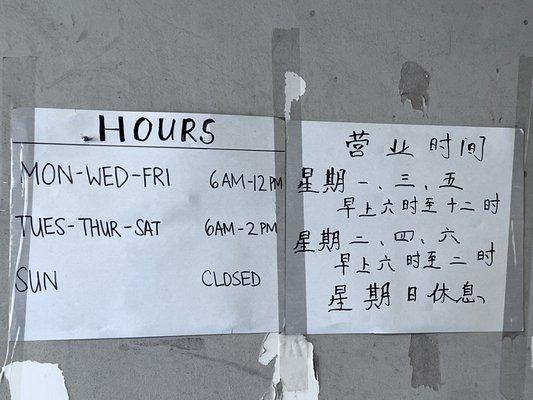 HOURS
MON-WED-FRI 6AM-12PM
TUES-THUR-SAT 6AM-2PM
SUN CLOSED
营业时间
星期一、三、五
早上六时至十二时
星期二、四、六
早上六时至二时
星期日休息